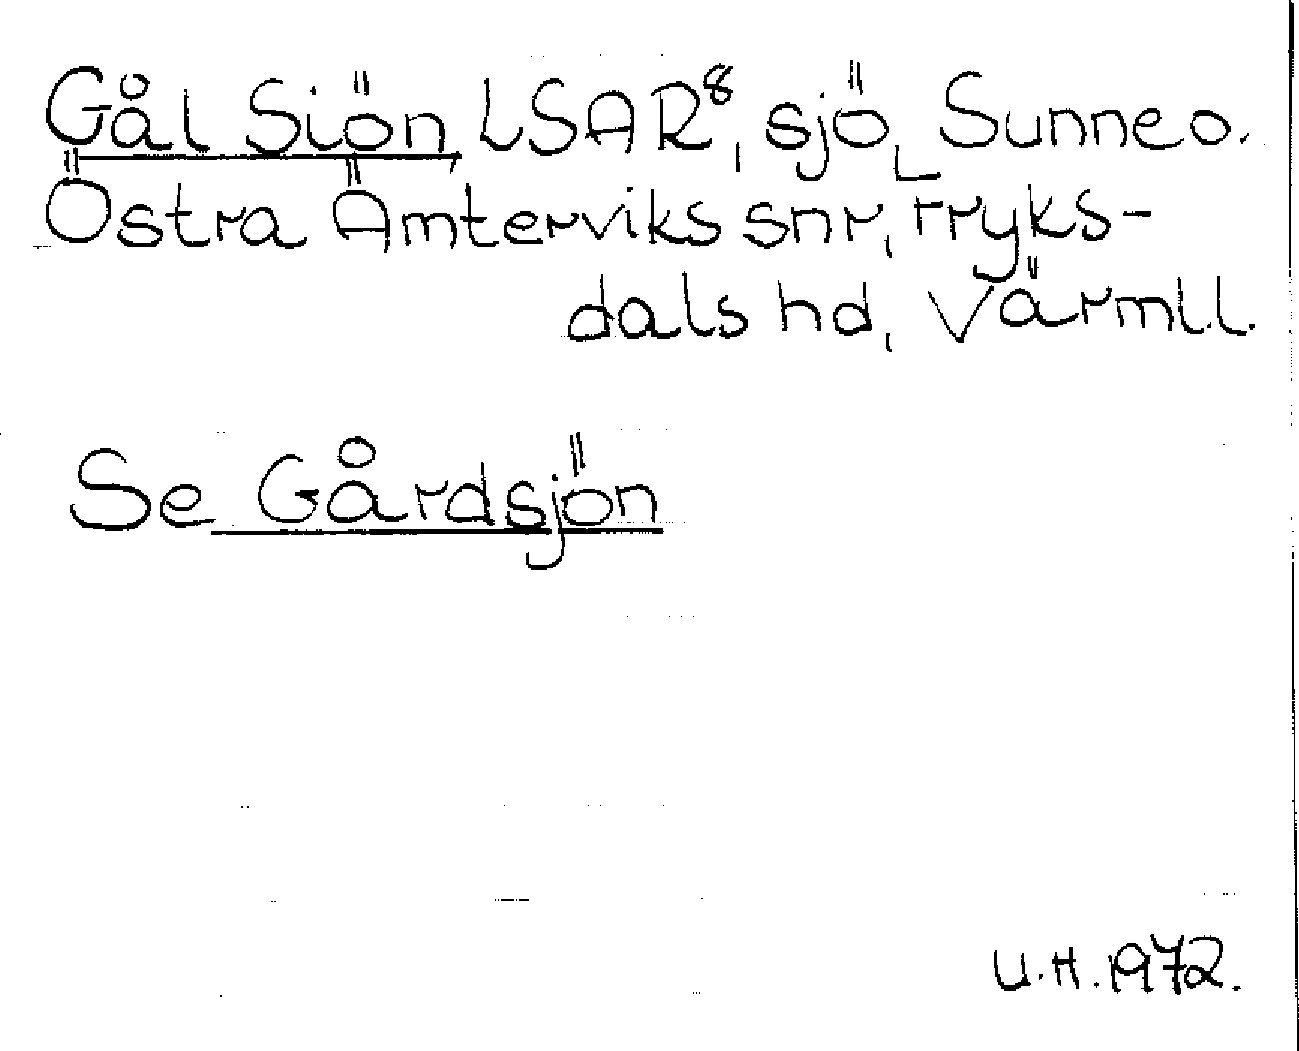 Gål Siön LSAR⁸, sjö, Sunne o.
Östra Ämterviks snr, Fryks-
dals hd, Värml.l.
Se Gårdsjön
U.H. 1972.